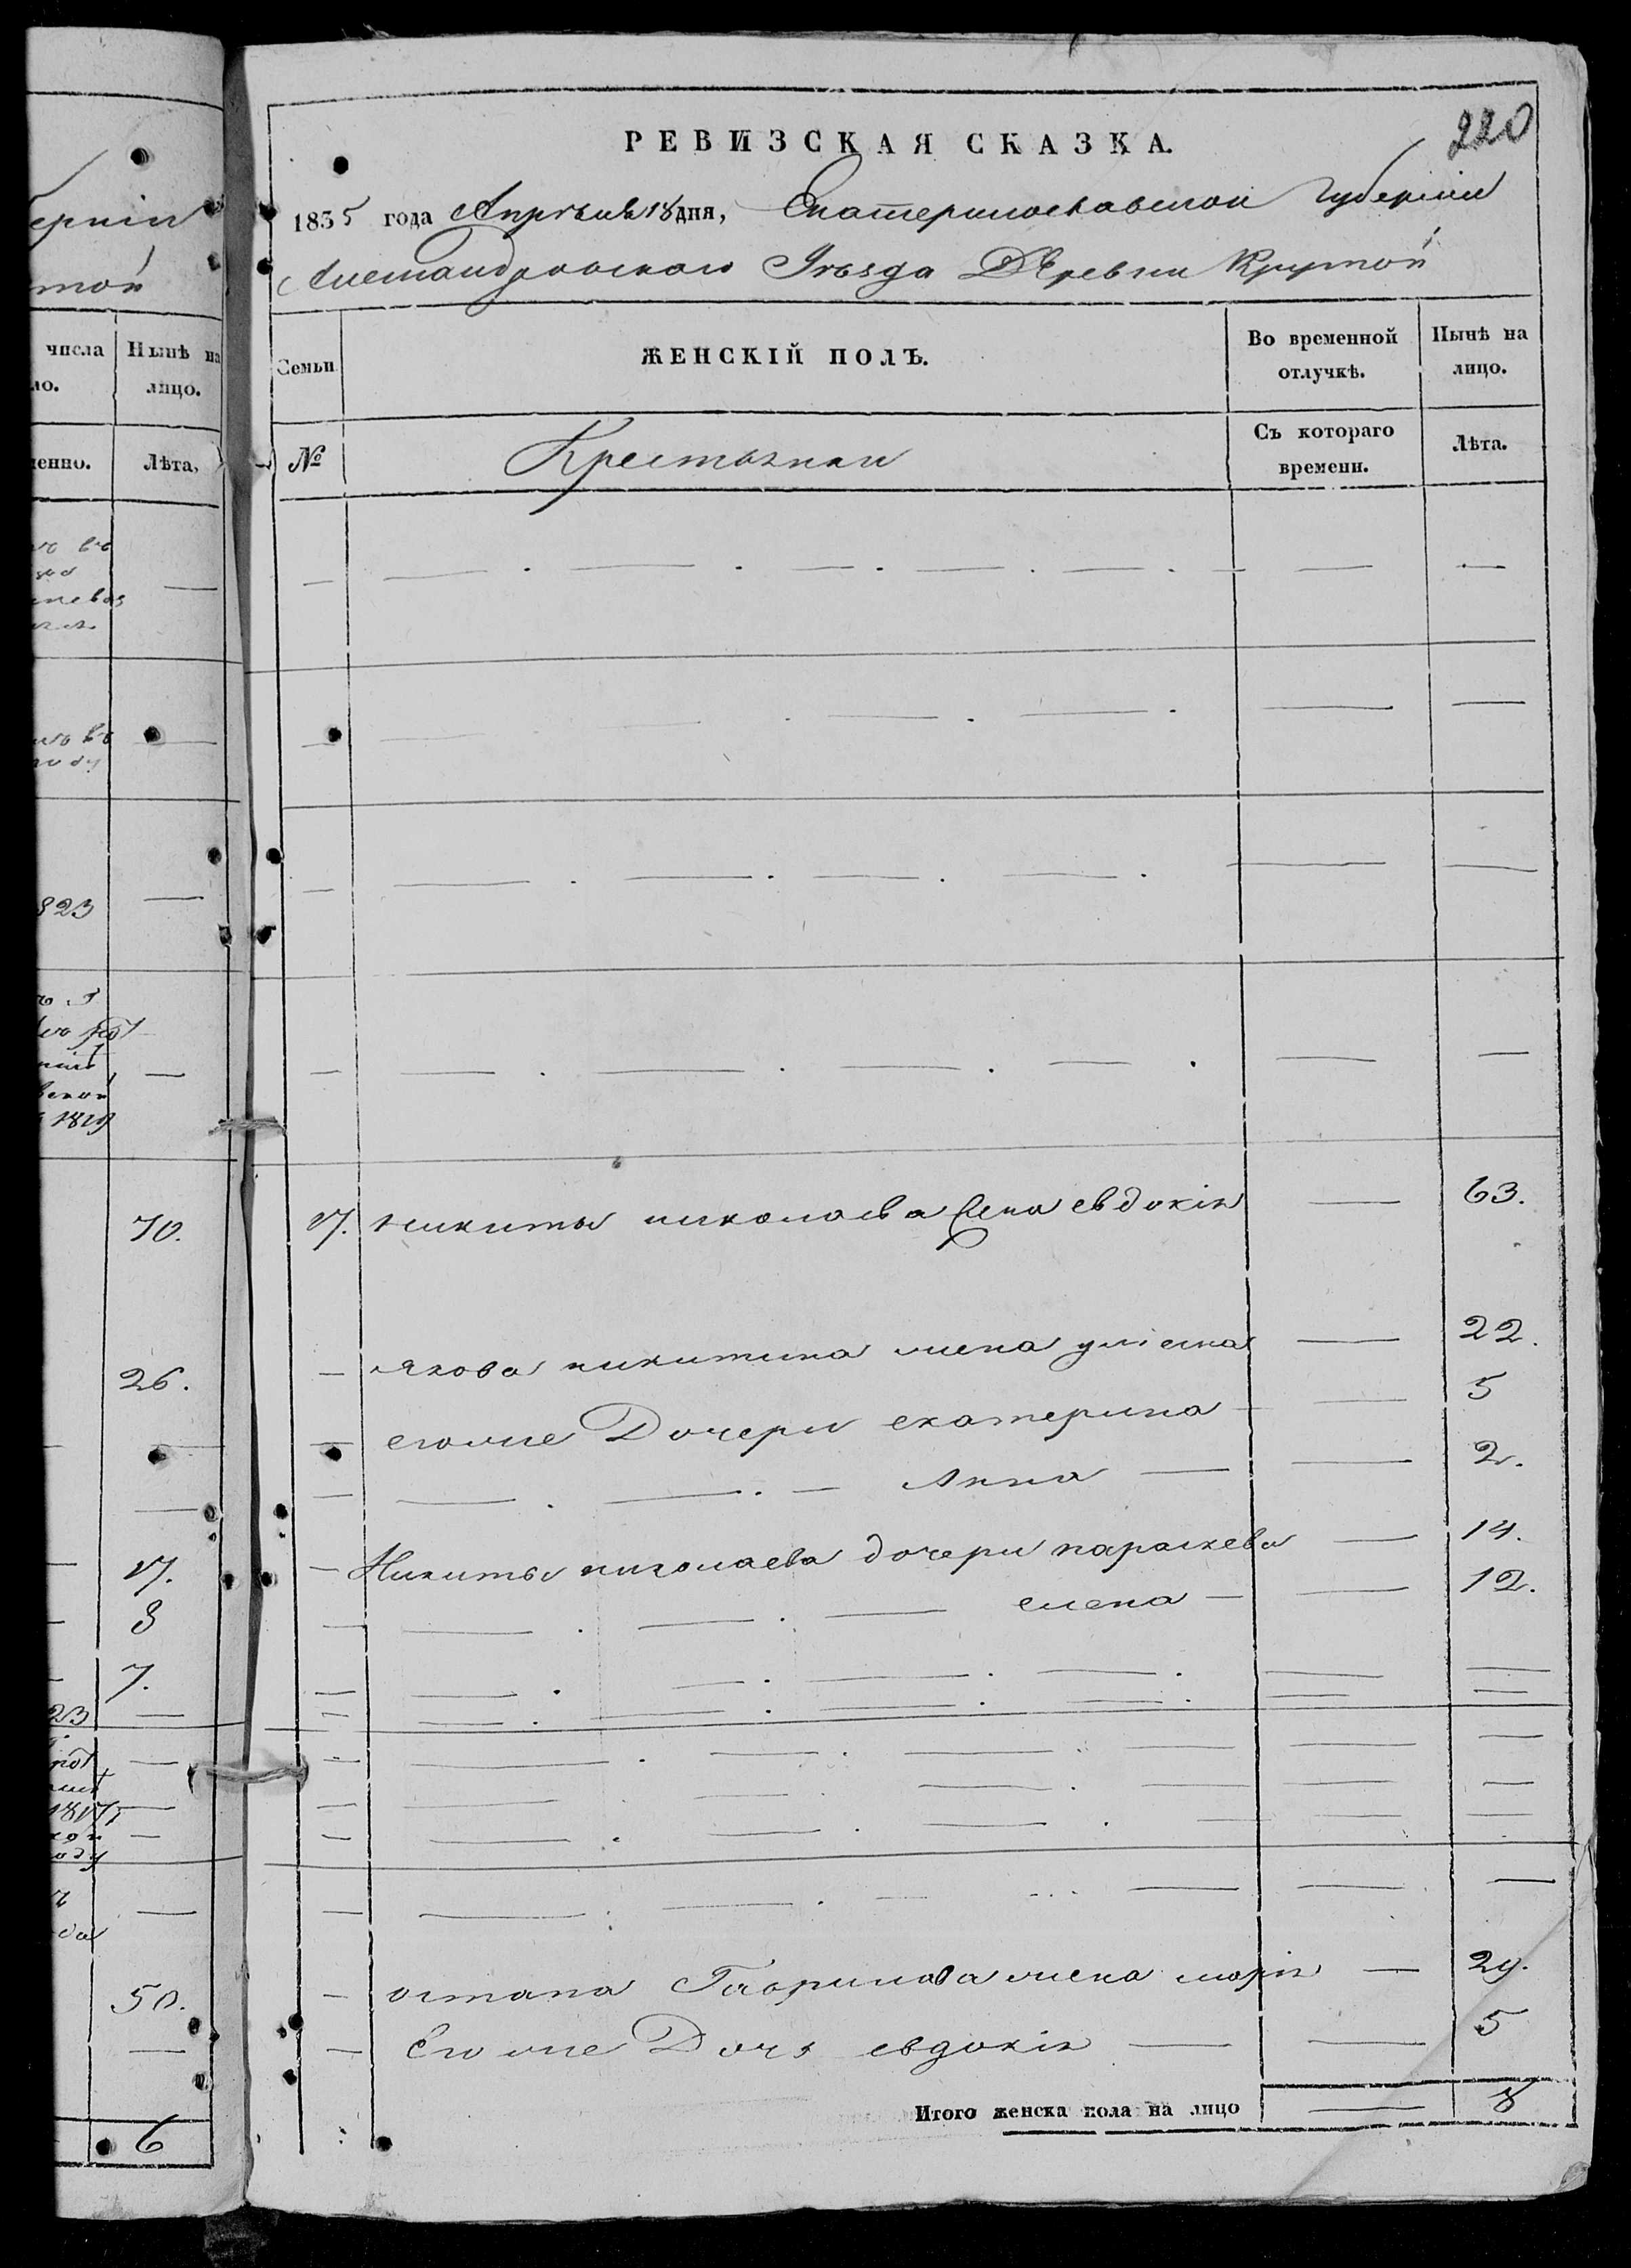 ерніи
той
числа Нынѣ на
ло. лицо.
Лѣта,
823
1819
70.
26.
17.
8
7.
23
50.
6
220
РЕВИЗСКАЯ СКАЗКА.
1835 года Апрѣля 18 дня, Екатеринославской Губерніи
Александровского Уѣзда Деревни Крутой
Семьи ЖЕНСКІЙ ПОЛЪ. Во временной отлучкѣ. Нынѣ на лицо.
№ Крестьянки Съ котораго времени. Лѣта.
17. Никиты николаева жена евдокія — 63.
— якова никитина жена уліяна — 22.
— егоже Дочери екатерина — 5
— Анна — 2.
— Никиты николаева дочери параскева — 14.
— елена — 12.
— остапа Гаврилова жена марія — 29.
— Егоже Дочь евдокія — 5
Итого женска пола на лицо — 8